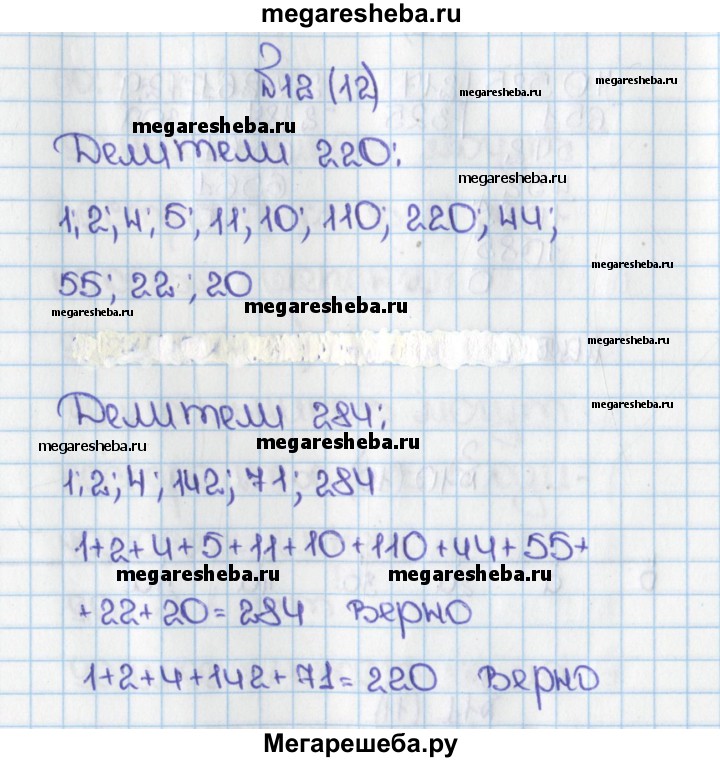 megaresheba.ru
№12 (12)
megaresheba.ru
megaresheba.ru
Делители 220:
megaresheba.ru
1; 2; 4; 5; 11; 10; 110; 220; 44;
megaresheba.ru
55; 22; 20
megaresheba.ru
megaresheba.ru
megaresheba.ru
Делители 284:
megaresheba.ru
megaresheba.ru
megaresheba.ru
1; 2; 4; 142; 71; 284
1+2+4+5+11+10+110+44+55+
megaresheba.ru
megaresheba.ru
+22+20=284 Верно
1+2+4+142+71=220 Верно
Мегарешеба.ру